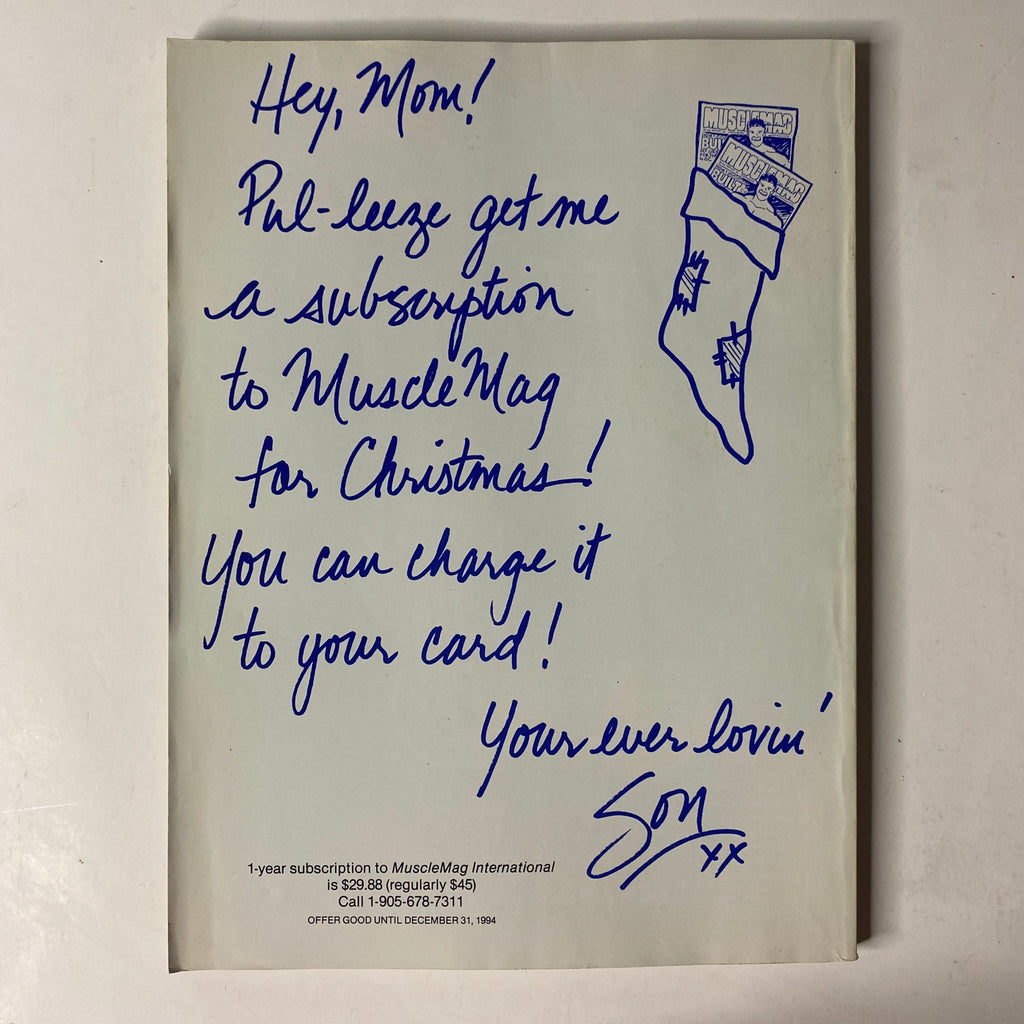 Hey, Mom!
Pul-leeze get me
a subscription
to MuscleMag
for Christmas!
You can charge it
to your card!
Your ever lovin'
Son
xx
MUSCLEMAG
MUSCLEMAG
BUILT
1-year subscription to MuscleMag International
is $29.88 (regularly $45)
Call 1-905-678-7311
OFFER GOOD UNTIL DECEMBER 31, 1994